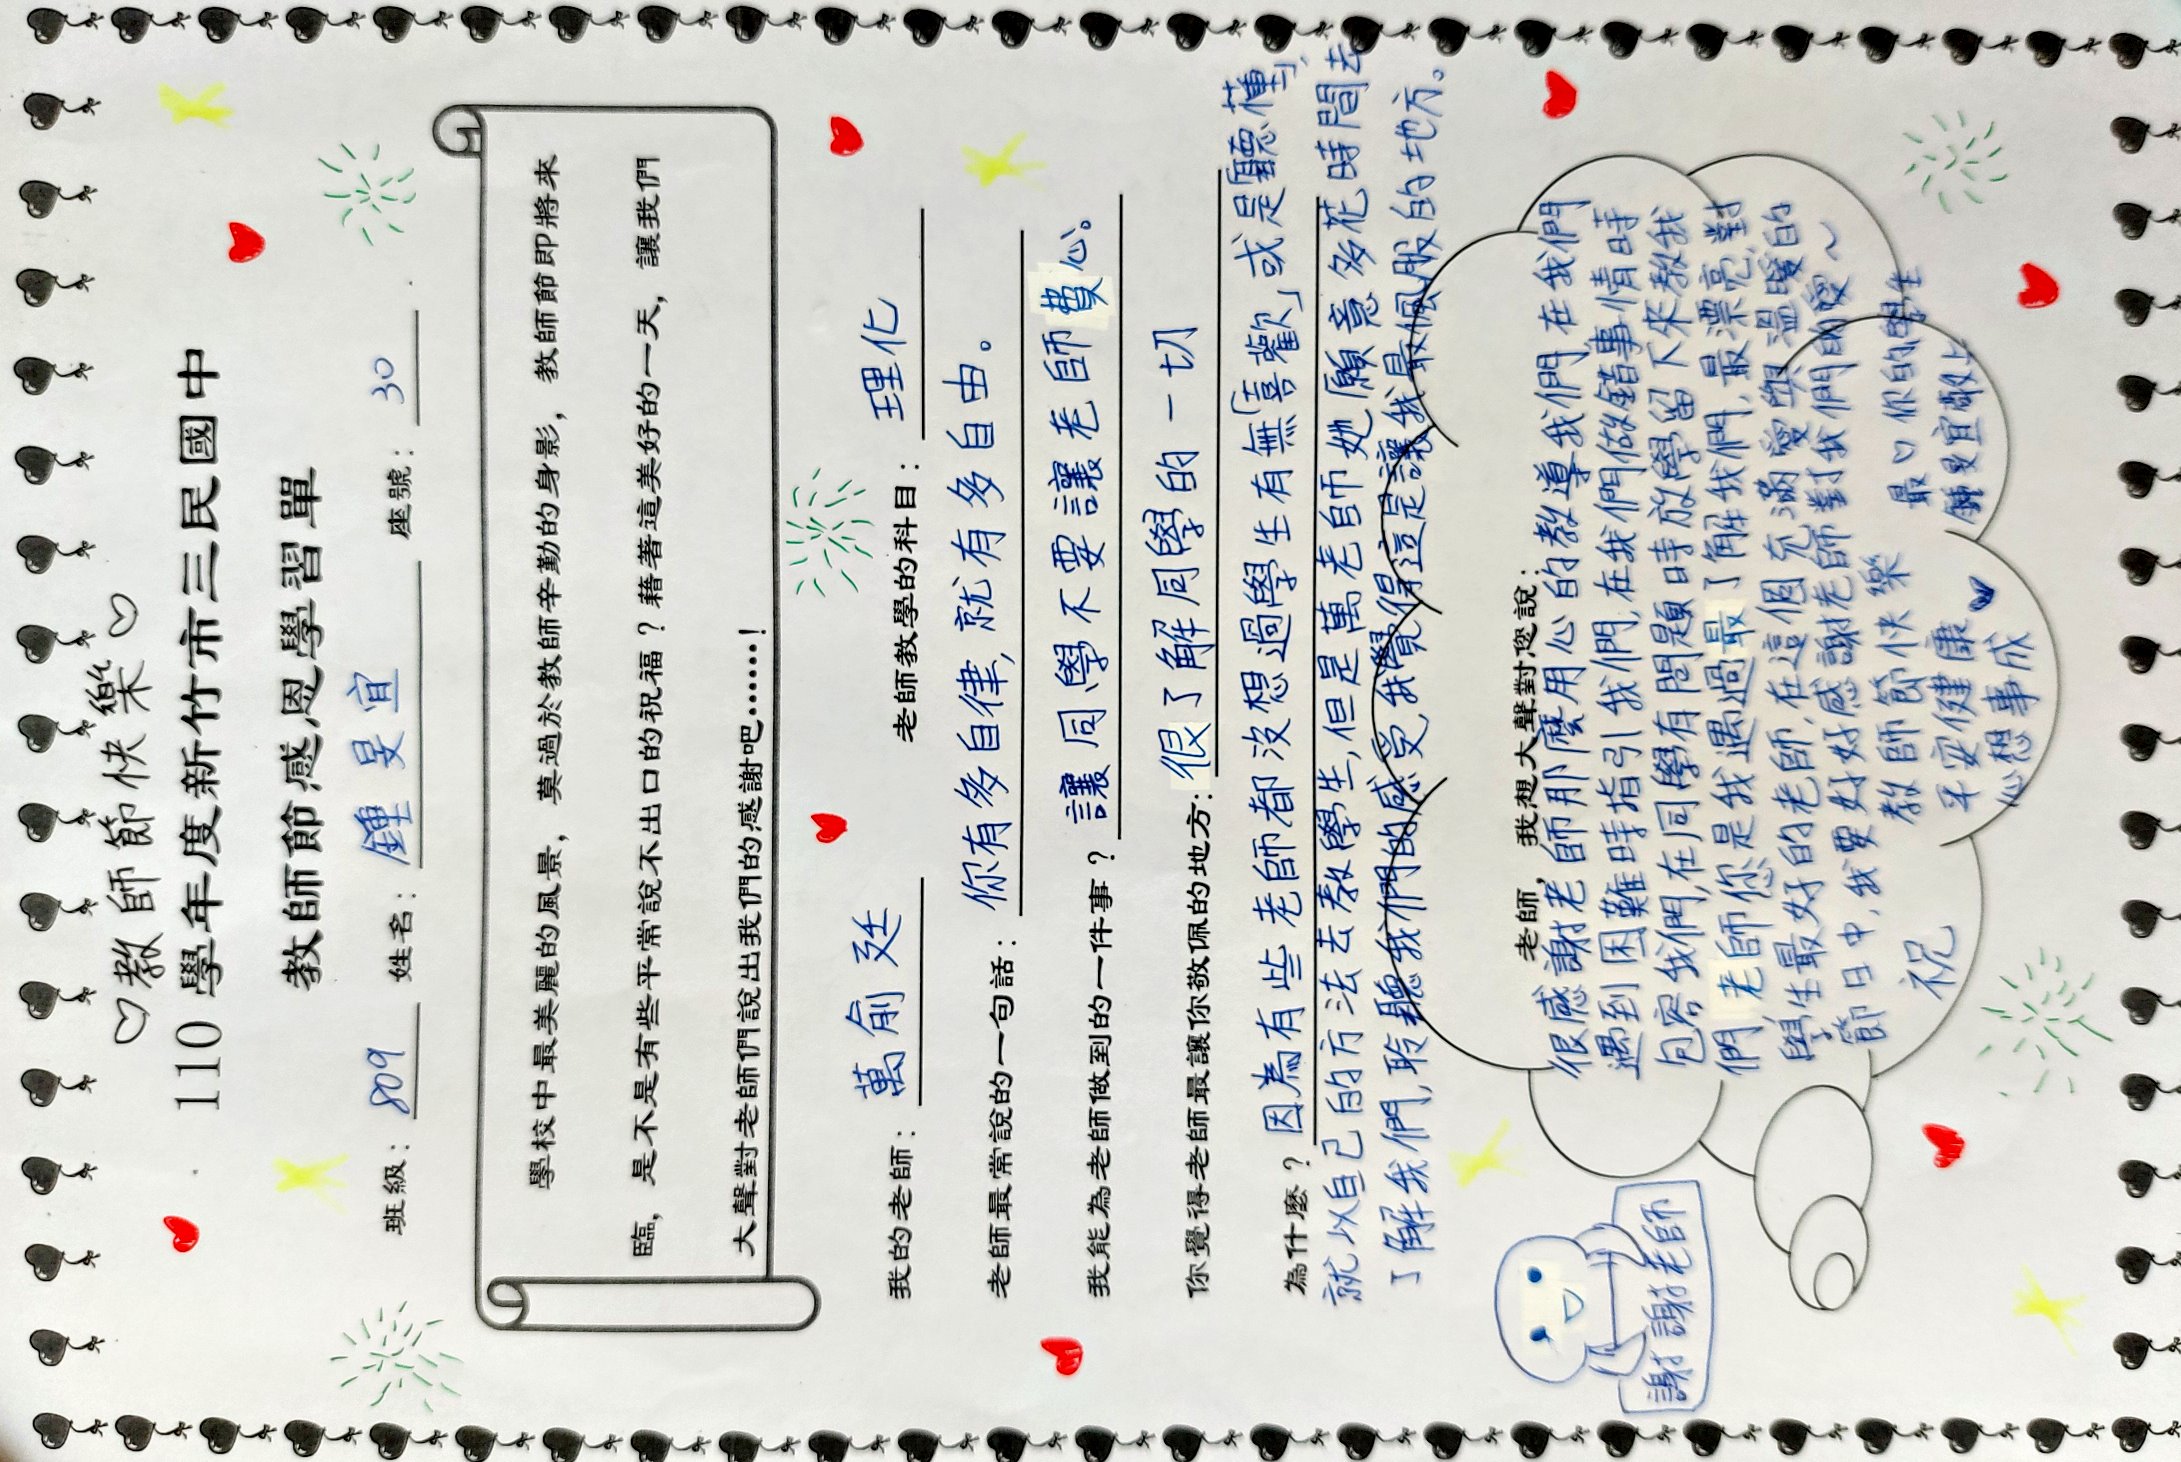 ♡教師節快樂♡
110 學年度新竹市三民國中
教師節感恩學習單
班級： 809 姓名： 鍾旻宜 座號： 30 .
學校中最美麗的風景，莫過於教師辛勤的身影，教師節即將來
臨，是不是有些平常說不出口的祝福？藉著這美好的一天，讓我們
大聲對老師們說出我們的感謝吧……！
我的老師： 萬俞廷 老師教學的科目： 理化
老師最常說的一句話： 你有多自律，就有多自由。
我能為老師做到的一件事？ 讓同學不要讓老師費心。
你覺得老師最讓你敬佩的地方： 很了解同學的一切
為什麼？ 因為有些老師都沒想過學生有無「喜歡」或是「聽懂」，
就以自己的方法去教學生，但是萬老師她願意多花時間去
了解我們，聆聽我們的感受我覺得這是讓我最佩服的地方。
老師，我想大聲對您說：
很感謝老師那麼用心的教導我們，在我們
遇到困難時指引我們，在我們做錯事情時
包容我們，在同學有問題時放學留下來教我
們，老師您是我遇過最了解我們，最漂亮，對
學生最好的老師，在這個充滿愛與溫暖的
節日中，我要好好感謝老師對我們的愛~
祝
教師節快樂
平安健康
心想事成
最♡你的學生
鍾旻宜敬上
謝謝老師